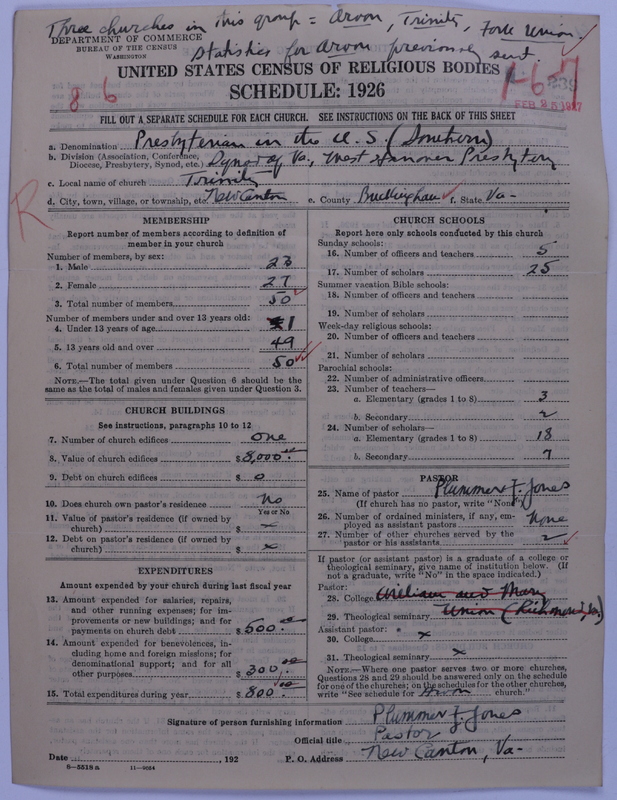 Three churches in this group = Arvon, Trinity, Fork Union.
DEPARTMENT OF COMMERCE
BUREAU OF THE CENSUS
WASHINGTON
Statistics for Arvon previously sent.
UNITED STATES CENSUS OF RELIGIOUS BODIES
SCHEDULE: 1926
8 6
1-67
FEB 25 1927
FILL OUT A SEPARATE SCHEDULE FOR EACH CHURCH. SEE INSTRUCTIONS ON THE BACK OF THIS SHEET
a. Denomination Presbyterian in the U.S. (Southern)
b. Division (Association, Conference, Diocese, Presbytery, Synod, etc.) Synod of Va., West Hanover Presbytery
c. Local name of church Trinity
d. City, town, village, or township, etc. New Canton e. County Buckingham f. State Va-
R
MEMBERSHIP
Report number of members according to definition of
member in your church
Number of members, by sex:
1. Male 23
2. Female 27
3. Total number of members 50
Number of members under and over 13 years old:
4. Under 13 years of age 1
5. 13 years old and over 49
6. Total number of members 50
NOTE.—The total given under Question 6 should be the
same as the total of males and females given under Question 3.
CHURCH BUILDINGS
See instructions, paragraphs 10 to 12
7. Number of church edifices one
8. Value of church edifices $ 8,000.00
9. Debt on church edifices $ 0
10. Does church own pastor's residence No
Yes or No
11. Value of pastor's residence (if owned by
church) $ x
12. Debt on pastor's residence (if owned by
church) $ x
EXPENDITURES
Amount expended by your church during last fiscal year
13. Amount expended for salaries, repairs,
and other running expenses; for im-
provements or new buildings; and for
payments on church debt $ 500.00
14. Amount expended for benevolences, in-
cluding home and foreign missions; for
denominational support; and for all
other purposes $ 300.00
15. Total expenditures during year $ 800.00
CHURCH SCHOOLS
Report here only schools conducted by this church
Sunday schools:
16. Number of officers and teachers 5
17. Number of scholars 25
Summer vacation Bible schools:
18. Number of officers and teachers
19. Number of scholars
Week-day religious schools:
20. Number of officers and teachers
21. Number of scholars
Parochial schools:
22. Number of administrative officers
23. Number of teachers—
a. Elementary (grades 1 to 8) 3
b. Secondary 2
24. Number of scholars—
a. Elementary (grades 1 to 8) 18
b. Secondary 7
PASTOR
25. Name of pastor Plummer F. Jones
(If church has no pastor, write "None")
26. Number of ordained ministers, if any, em-
ployed as assistant pastors None
27. Number of other churches served by the
pastor or his assistants 2
If pastor (or assistant pastor) is a graduate of a college or
theological seminary, give name of institution below. (If
not a graduate, write "No" in the space indicated.)
Pastor:
28. College William and Mary
29. Theological seminary Union (Richmond, Va.)
Assistant pastor:
30. College x
31. Theological seminary x
NOTE.—Where one pastor serves two or more churches,
Questions 28 and 29 should be answered only on the schedule
for one of the churches; on the schedules for the other churches,
write "See schedule for Arvon church."
Signature of person furnishing information Plummer F. Jones
Official title Pastor
Date , 192 P. O. Address New Canton, Va-
8—5518 a 11—9054